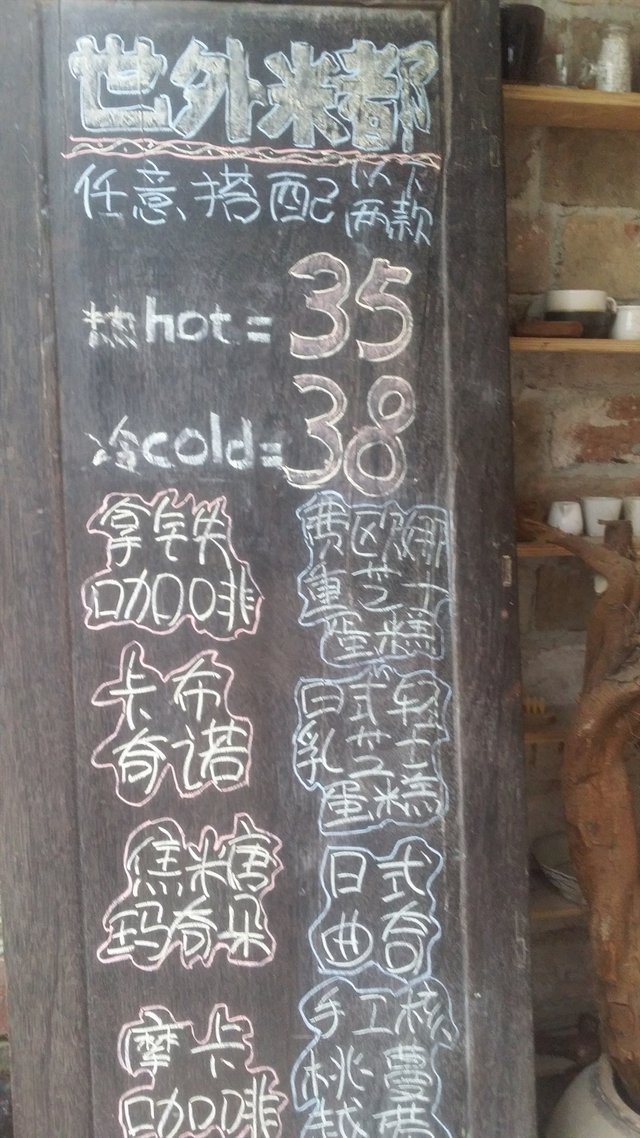 世外米都
任意搭配以下两款
热hot=35
冷cold=38
拿铁
咖啡
费欧娜
重芝士
蛋糕
卡布
奇诺
日式轻
乳芝士
蛋糕
焦米糖
玛奇朵
日式
曲奇
摩卡
咖啡
手工核
桃蔓
越莓